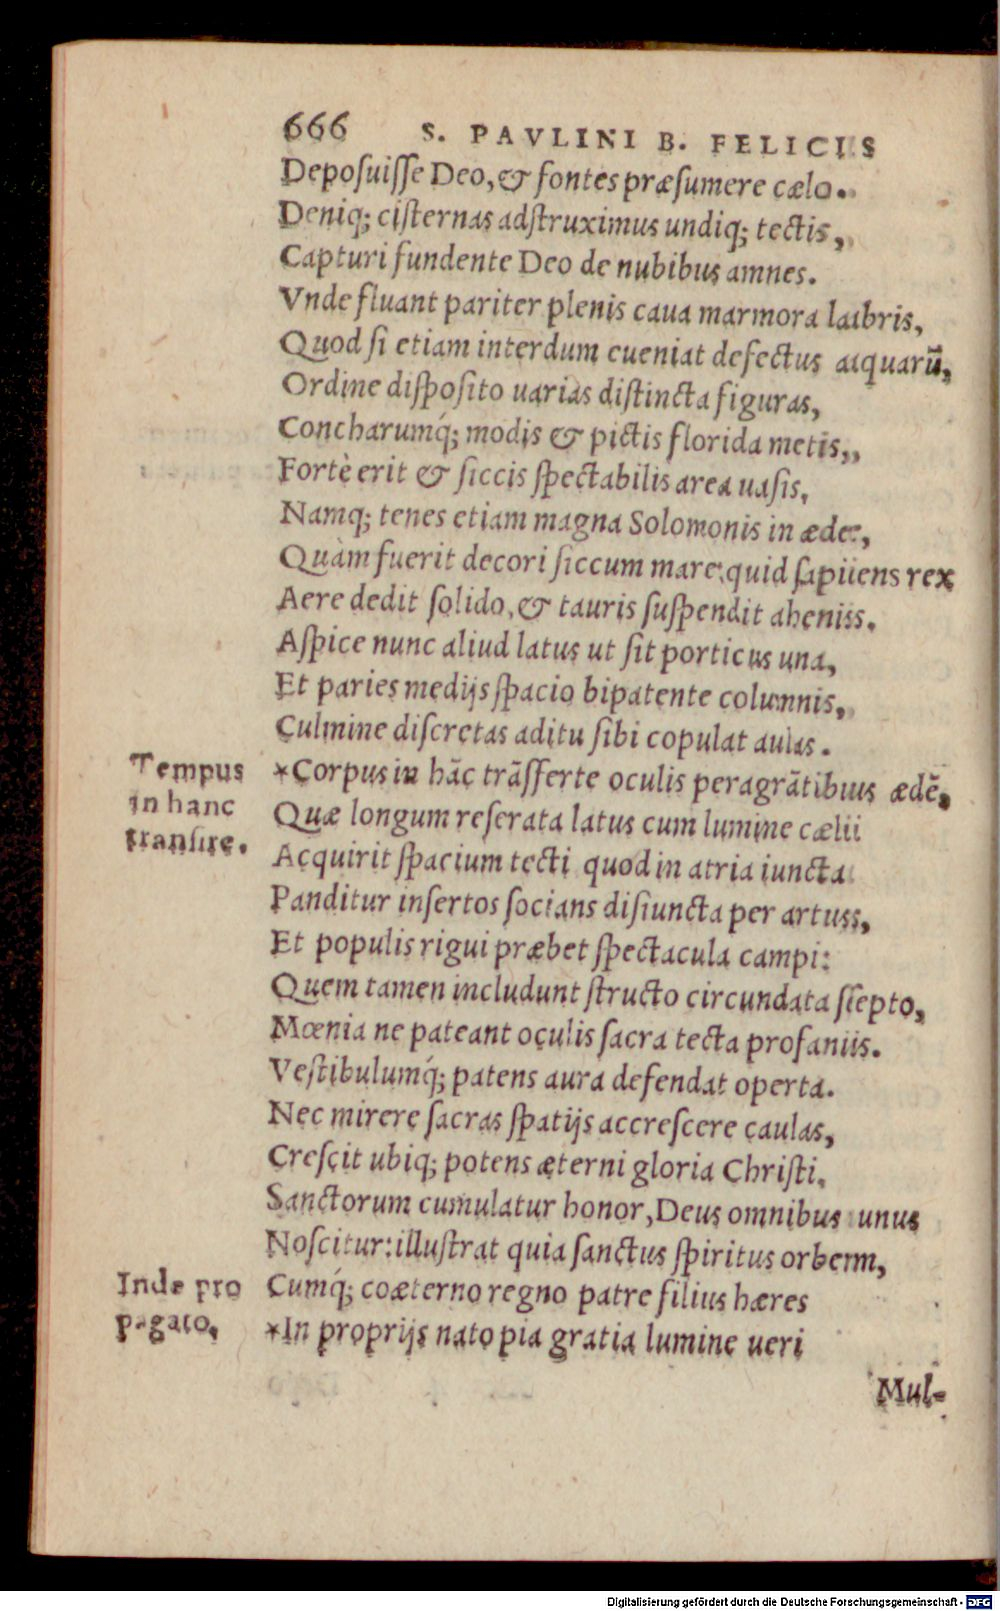 666 S. PAVLINI B. FELICIS
Deposuisse Deo, & fontes præsumere cælo.
Deniq; cisternas adstruximus undiq; tectis,
Capturi fundente Deo de nubibus amnes.
Vnde fluant pariter plenis caua marmora labris,
Quod si etiam interdum eueniat defectus aquarū,
Ordine disposito uarias distincta figuras,
Concharumq́; modis & pictis florida metis,
Fortè erit & siccis spectabilis area uasis,
Namq; tenes etiam magna Solomonis in æde,
Quàm fuerit decori siccum mare, quid sapiens rex
Aere dedit solido, & tauris suspendit ahenis.
Aspice nunc aliud latus ut sit porticus una,
Et paries medijs spacio bipatente columnis,
Culmine discretas aditu sibi copulat aulas.
Tempus
in hanc
transire.
*Corpus in hāc trāsferte oculis peragrātibus ædē,
Quæ longum reserata latus cum lumine cæli
Acquirit spacium tecti quod in atria iuncta
Panditur insertos socians disiuncta per artus,
Et populis rigui præbet spectacula campi:
Quem tamen includunt structo circundata septo,
Mœnia ne pateant oculis sacra tecta profanis.
Vestibulumq́; patens aura defendat operta.
Nec mirere sacras spatijs accrescere caulas,
Crescit ubiq; potens æterni gloria Christi,
Sanctorum cumulatur honor, Deus omnibus unus
Noscitur: illustrat quia sanctus spiritus orbem,
Inde pro
pagato,
Cumq́; coæterno regno patre filius hæres
*In proprijs nato pia gratia lumine ueri
Mul-
Digitalisierung gefördert durch die Deutsche Forschungsgemeinschaft - DFG